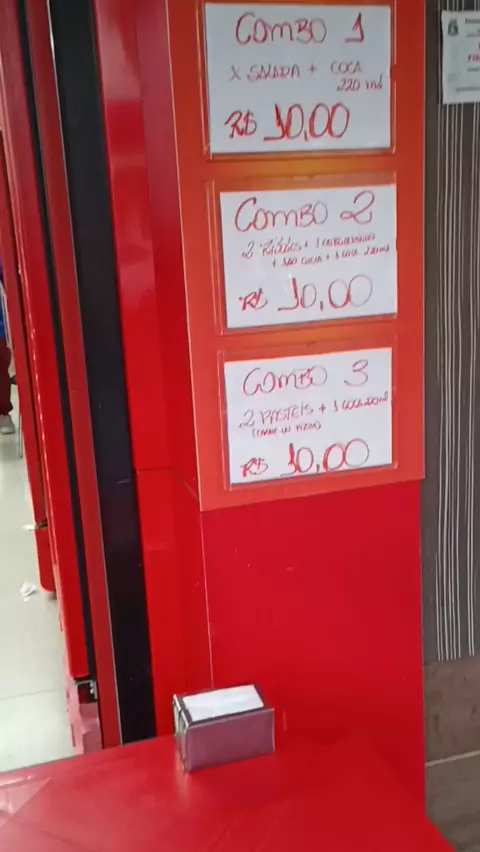 COMBO 1
X SALADA + COCA
220 ml
R$ 10,00
COMBO 2
+ 1 COCA 220 ml
R$ 10,00
COMBO 3
2 PASTÉIS + 1 COCA 220 ml
(CARNE OU PIZZA)
R$ 10,00